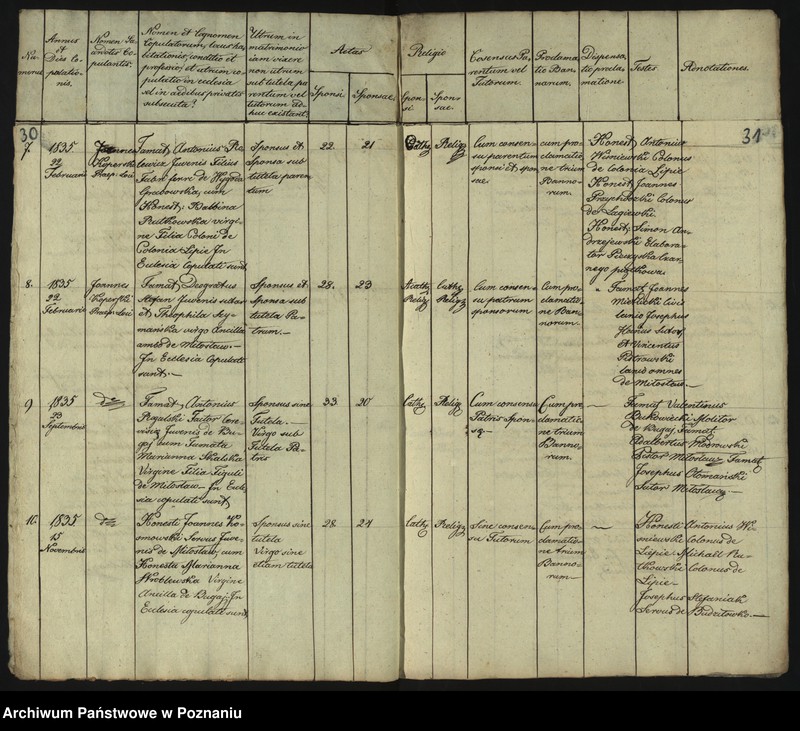 Numerus
Annus et Dies Copulationis.
Nomen Sacerdotis Copulantis.
Nomen et Cognomen
Copulatorum, locus ha-
bitationis, conditio et
professio, et utrum co-
pulatio in ecclesia
vel in ædibus privatis
subsecuta?
Utrum in
matrimonio
iam vixere
non utrum
sub tutela pa-
rentum vel
tutorum ad-
huc existant.
Aetas
Sponsi.
Sponsae.
Religio
Spon-
si.
Spon-
sae.
Cosensus Pa-
rentum vel
Tutorum.
Proclama-
tio Ban-
norum.
Dispensa-
tio procla-
matione.
Testes.
Adnotationes.
30
31
7.
1835
22
Februarii
Joannes
Koperski
Famat. Antonius Ra-
lewicz Juvenis Filius
Grabowska, cum
Honest: Balbina
Rutkowska virgi-
ne Filia Coloni de
Colonia Lipie In
Eclesia Copulati sunt
Sponsus et
Sponsa sub
tutela paren
tum
22.
21
Cath
Relig
Cum consen-
su parentum
sponsi et spon
sae.
cum pro
clamatio
ne trium
Banno-
rum.
Honest, Antonius
Wisniewski Colonus
de Colonia Lipie
Honest, Joannes
Colonus
de Lagiewski.
Honest, Simon An-
drzejewski
8.
1835
22
Februarii
Joannes
Koperski
Famat,
Stefan Juvenis sutor
et Theophila Szy-
mańska virgo Ancilla
ambo de Miloslaw.-
In Ecclesia Copulati
sunt.-
Sponsus et
Sponsa sub
tutela Pa-
trum.-
28.
23
Cath
Relig
Cum consen-
su patrum
sponsorum
Cum pro
clamatio
ne Ban-
norum.
Famat, Joannes
Josephus
Sutor
et Vincentus
Piotrowski
omnes
de Miloslaw-
9
1835
23
Septembris
Famat, Antonius
Rogalski
Juvenis de Bu-
gaj cum Famata
Marianna Skalska
Virgine Filia Figuli
de Miloslaw- In Ecle
sia copulati sunt,
Sponsus sine
Tutela.-
Virgo sub
Tutela Pa-
tris
33
20
Cath
Relig
Cum consensu
Patris Spon-
sæ-
Cum pro
clamatio
ne trium
Banno-
rum.
Famat Valentinus
Molitor
de Bugaj, Famat,
Adalbertus Modrowski
Sutor Miloslaw, Famat,
Josephus
Sutor
10.
1835
15
Novembris
Honesti Joannes Ko-
smowski Servus Juve-
nis de Miloslaw, cum
Honesta Marianna
Wroblewska Virgine
Ancilla de Bugaj. In
Ecclesia copulati sunt,
Sponsus sine
tutela
Virgo sine
etiam tutela
28.
24
Cath
Relig
Sine consen
su Tutorum
Cum pro
clamatio-
ne trium
Banno-
rum-
Honesti Antonius Wi-
sniewski Colonus de
Lipie- Michaël Ru-
tkowski Colonus de
Lipie-
Josephus Stefaniak
Servus de Budzilowko.-
Archiwum Państwowe w Poznaniu